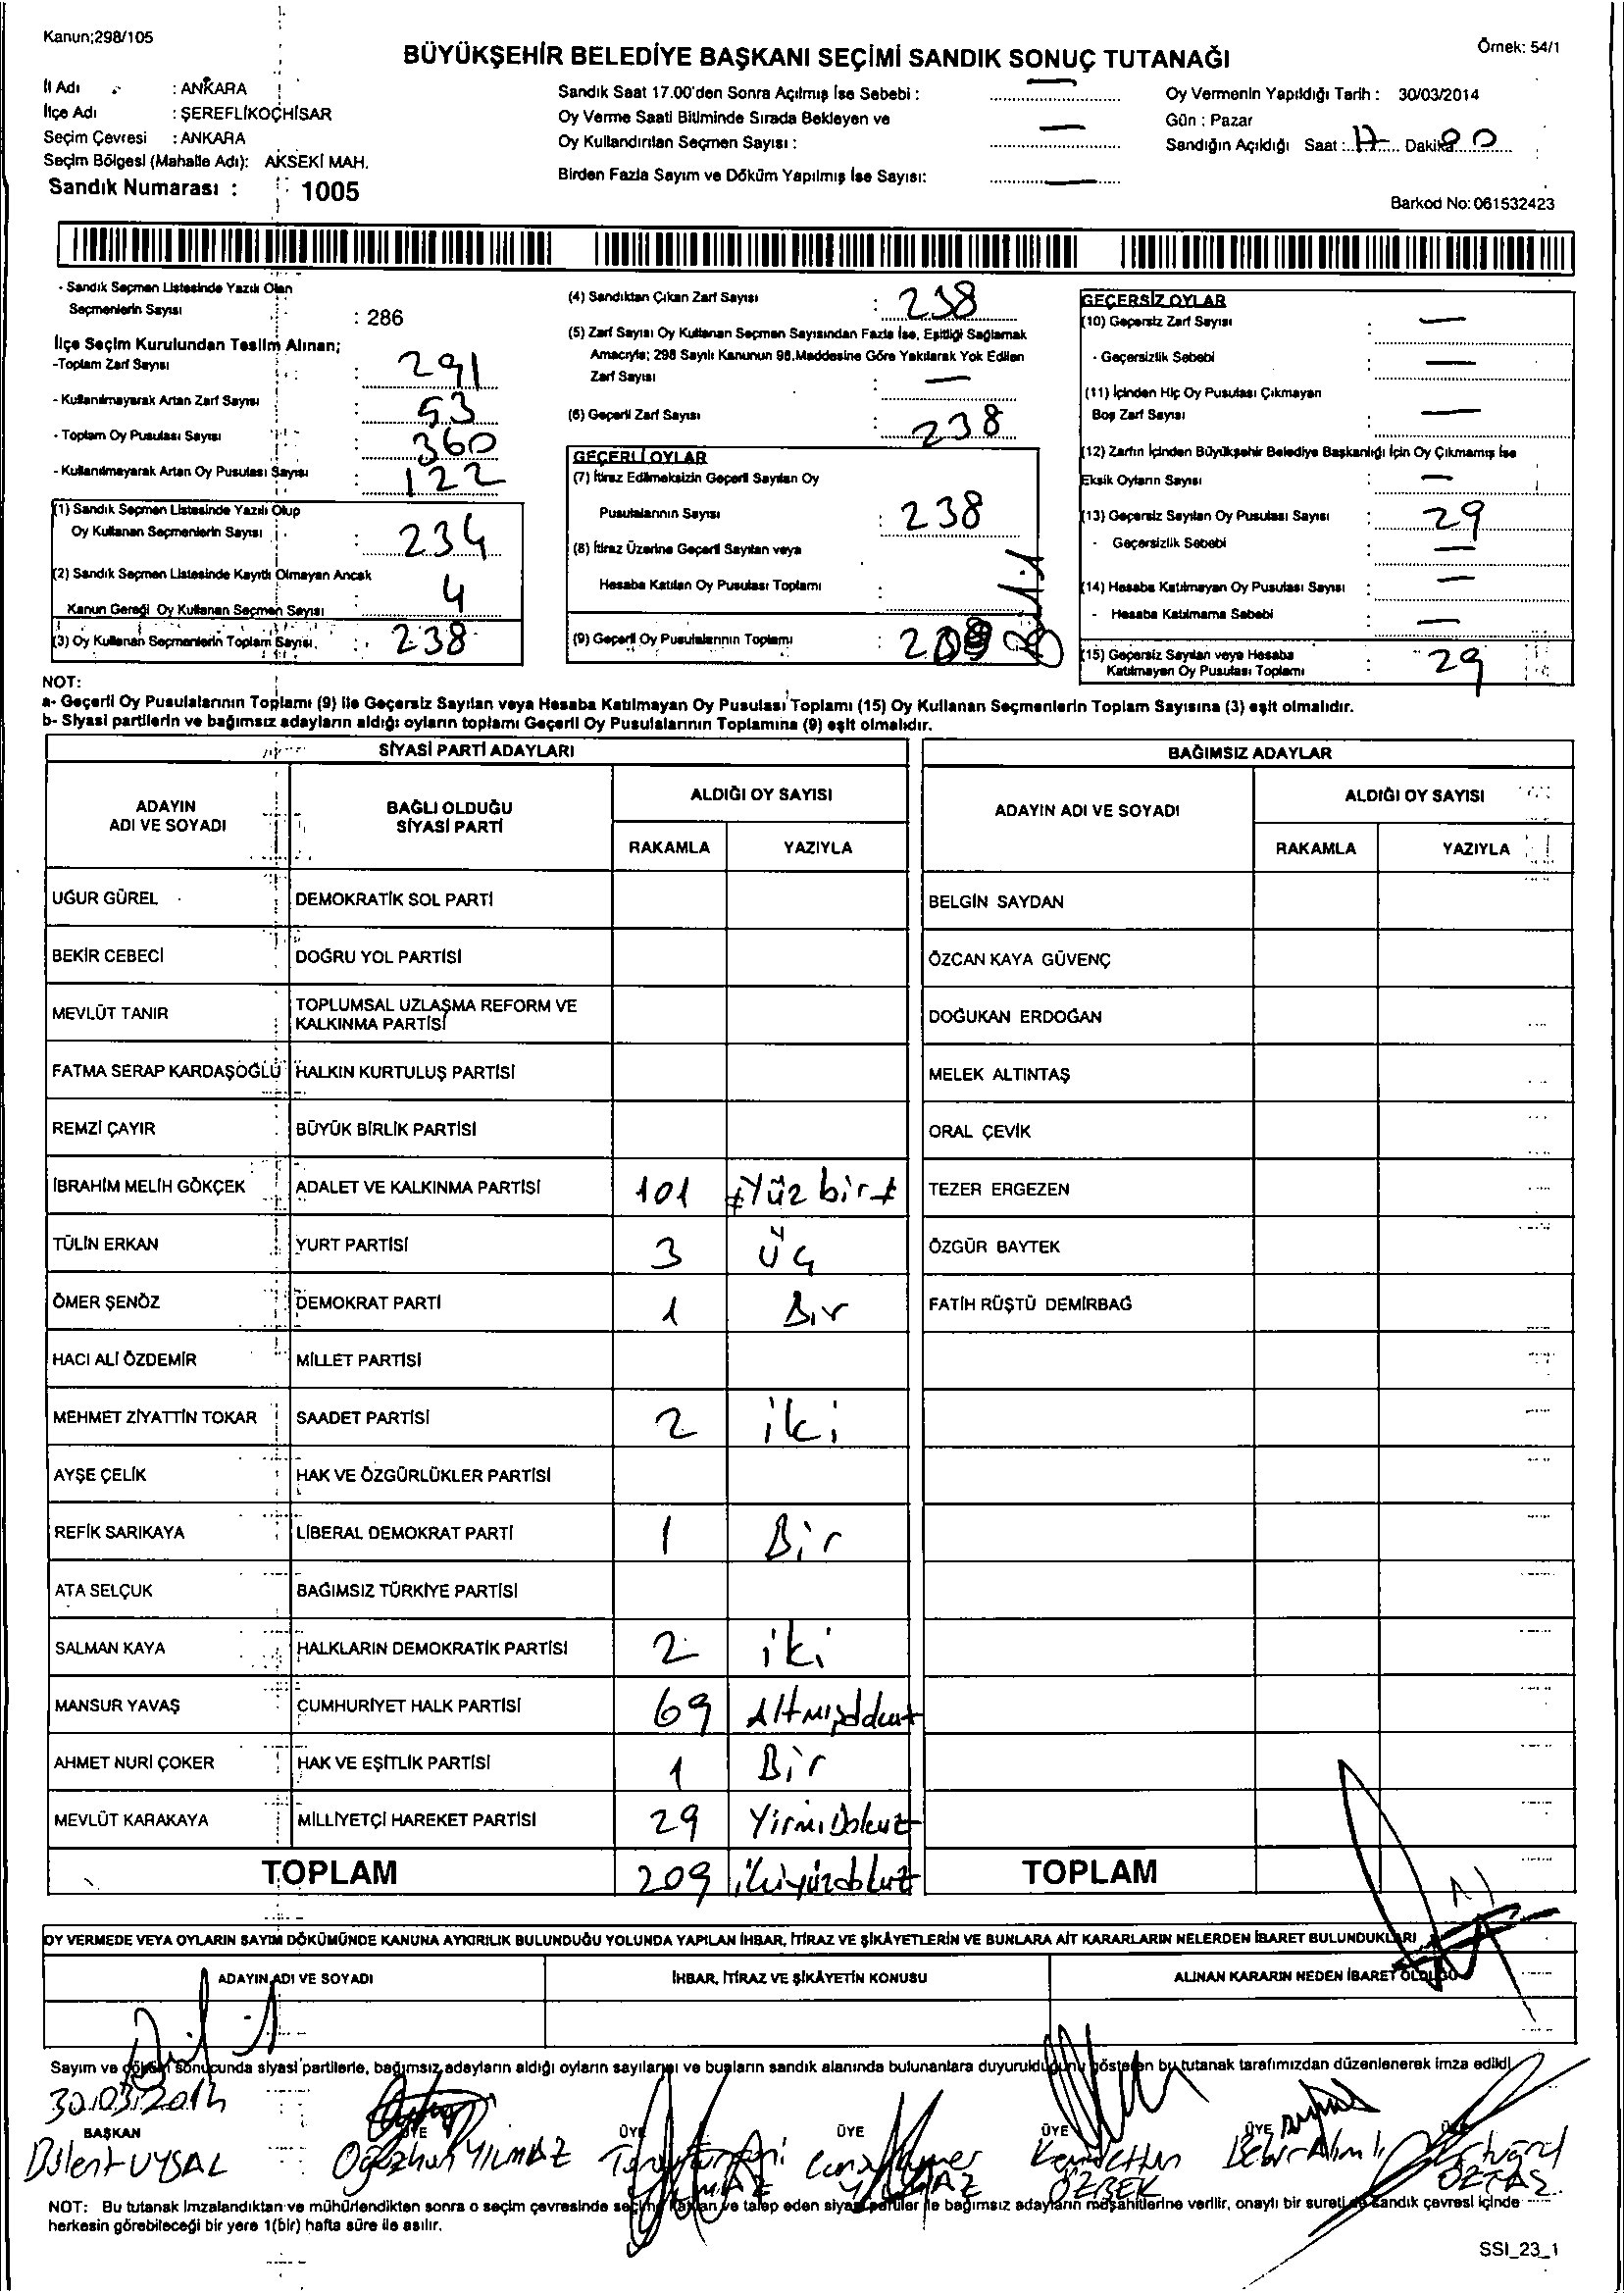 Kanun;298/105
BÜYÜKŞEHİR BELEDİYE BAŞKANI SEÇİMİ SANDIK SONUÇ TUTANAĞI
Örnek: 54/1
İl Adı : ANKARA
İlçe Adı : ŞEREFLİKOÇHİSAR
Seçim Çevresi : ANKARA
Seçim Bölgesi (Mahalle Adı): AKSEKİ MAH.
Sandık Numarası : 1005
Sandık Saat 17.00'den Sonra Açılmış İse Sebebi : —
Oy Verme Saati Bitiminde Sırada Bekleyen ve
Oy Kullandırılan Seçmen Sayısı : —
Birden Fazla Sayım ve Döküm Yapılmış İse Sayısı: —
Oy Vermenin Yapıldığı Tarih : 30/03/2014
Gün : Pazar
Sandığın Açıldığı Saat : 17 Dakika
Barkod No: 061532423
- Sandık Seçmen Listesinde Yazılı Olan
Seçmenlerin Sayısı : 286
İlçe Seçim Kurulundan Teslim Alınan;
-Toplam Zarf Sayısı : 291
- Kullanılmayarak Artan Zarf Sayısı : 53
- Toplam Oy Pusulası Sayısı : 360
- Kullanılmayarak Artan Oy Pusulası Sayısı : 122
(1) Sandık Seçmen Listesinde Yazılı Olup
Oy Kullanan Seçmenlerin Sayısı : 234
(2) Sandık Seçmen Listesinde Kayıtlı Olmayan Ancak
Kanun Gereği Oy Kullanan Seçmen Sayısı : 4
(3) Oy Kullanan Seçmenlerin Toplam Sayısı. : 238
(4) Sandıktan Çıkan Zarf Sayısı : 238
(5) Zarf Sayısı Oy Kullanan Seçmen Sayısından Fazla İse, Eşitliği Sağlamak
Amacıyla; 298 Sayılı Kanunun 98.Maddesine Göre Yakılarak Yok Edilen
Zarf Sayısı : —
(6) Geçerli Zarf Sayısı : 238
GEÇERLİ OYLAR
(7) İtiraz Edilmeksizin Geçerli Sayılan Oy
Pusulalarının Sayısı : 238
(8) İtiraz Üzerine Geçerli Sayılan veya
Hesaba Katılan Oy Pusulası Toplamı :
(9) Geçerli Oy Pusulalarının Toplamı :
GEÇERSİZ OYLAR
(10) Geçersiz Zarf Sayısı : —
- Geçersizlik Sebebi : —
(11) İçinden Hiç Oy Pusulası Çıkmayan
Boş Zarf Sayısı : —
(12) Zarfın İçinden Büyükşehir Belediye Başkanlığı İçin Oy Çıkmamış İse
Eksik Oyların Sayısı : —
(13) Geçersiz Sayılan Oy Pusulası Sayısı : 29
- Geçersizlik Sebebi : —
(14) Hesaba Katılmayan Oy Pusulası Sayısı : —
- Hesaba Katılmama Sebebi : —
(15) Geçersiz Sayılan veya Hesaba
Katılmayan Oy Pusulası Toplamı : 29
NOT:
a- Geçerli Oy Pusulalarının Toplamı (9) ile Geçersiz Sayılan veya Hesaba Katılmayan Oy Pusulası Toplamı (15) Oy Kullanan Seçmenlerin Toplam Sayısına (3) eşit olmalıdır.
b- Siyasi partilerin ve bağımsız adayların aldığı oyların toplamı Geçerli Oy Pusulalarının Toplamına (9) eşit olmalıdır.
SİYASİ PARTİ ADAYLARI
BAĞIMSIZ ADAYLAR
ADAYIN ADI VE SOYADI
BAĞLI OLDUĞU SİYASİ PARTİ
ALDIĞI OY SAYISI
RAKAMLA YAZIYLA
ADAYIN ADI VE SOYADI
ALDIĞI OY SAYISI
RAKAMLA YAZIYLA
UĞUR GÜREL DEMOKRATİK SOL PARTİ BELGİN SAYDAN
BEKİR CEBECİ DOĞRU YOL PARTİSİ ÖZCAN KAYA GÜVENÇ
MEVLÜT TANIR TOPLUMSAL UZLAŞMA REFORM VE KALKINMA PARTİSİ DOĞUKAN ERDOĞAN
FATMA SERAP KARDAŞOĞLU HALKIN KURTULUŞ PARTİSİ MELEK ALTINTAŞ
REMZİ ÇAYIR BÜYÜK BİRLİK PARTİSİ ORAL ÇEVİK
İBRAHİM MELİH GÖKÇEK ADALET VE KALKINMA PARTİSİ 101 #Yüz bir# TEZER ERGEZEN
TÜLİN ERKAN YURT PARTİSİ 3 Üç ÖZGÜR BAYTEK
ÖMER ŞENÖZ DEMOKRAT PARTİ 1 Bir FATİH RÜŞTÜ DEMİRBAĞ
HACI ALİ ÖZDEMİR MİLLET PARTİSİ
MEHMET ZİYATTİN TOKAR SAADET PARTİSİ 2 iki
AYŞE ÇELİK HAK VE ÖZGÜRLÜKLER PARTİSİ
REFİK SARIKAYA LİBERAL DEMOKRAT PARTİ 1 Bir
ATA SELÇUK BAĞIMSIZ TÜRKİYE PARTİSİ
SALMAN KAYA HALKLARIN DEMOKRATİK PARTİSİ 2 iki
MANSUR YAVAŞ CUMHURİYET HALK PARTİSİ 69
AHMET NURİ ÇOKER HAK VE EŞİTLİK PARTİSİ 1 Bir
MEVLÜT KARAKAYA MİLLİYETÇİ HAREKET PARTİSİ 29 Yirmi Dokuz
TOPLAM 209 ikiyüzdokuz TOPLAM
OY VERMEDE VEYA OYLARIN SAYIM DÖKÜMÜNDE KANUNA AYKIRILIK BULUNDUĞU YOLUNDA YAPILAN İHBAR, İTİRAZ VE ŞİKÂYETLERİN VE BUNLARA AİT KARARLARIN NELERDEN İBARET BULUNDUKLARI
ADAYIN ADI VE SOYADI İHBAR, İTİRAZ VE ŞİKÂYETİN KONUSU ALINAN KARARIN NEDEN İBARET OLDUĞU
Sayım ve döküm sonucunda siyasi partilerle, bağımsız adayların aldığı oyların sayılarını ve bunların sandık alanında bulunanlara duyurulduğunu gösteren bu tutanak tarafımızdan düzenlenerek imza edildi
30.03.2014
BAŞKAN ÜYE ÜYE ÜYE ÜYE ÜYE ÜYE
Bülent UYSAL Oğuzhan YILMAZ ÖZBEK Bekir ÖZTAŞ
NOT: Bu tutanak imzalandıktan ve mühürlendikten sonra o seçim çevresinde seçime katılan ve talep eden siyasi partiler ile bağımsız adayların müşahitlerine verilir, onaylı bir sureti de sandık çevresi içinde
herkesin görebileceği bir yere 1(bir) hafta süre ile asılır.
SSI_23_1